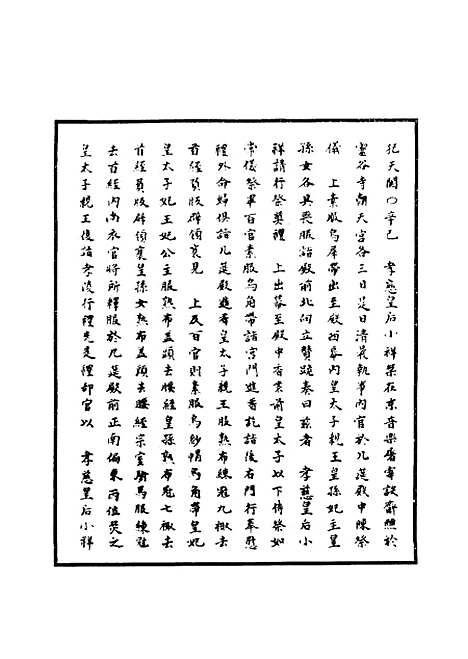 犯天關○辛巳　孝慈皇后小祥禁在京音樂屠宰設齋醮於
靈谷寺朝天宮各三日是日清晨執事內官於几筵殿中陳祭
儀　上素服烏犀帶出至殿西幕內皇太子親王皇孫妃主皇
孫女各具喪服詣殿前北向立贊跪奏曰茲者　孝慈皇后小
祥請行祭奠禮　上出幕至殿中香案前皇太子以下侍祭如
常儀祭畢百官素服烏角帶詣宮門進香訖詣後右門行奉慰
禮外命婦俱詣几筵殿進香皇太子親王服熟布練冠九𧞤去
首絰負版辟領衰見　上及百官則素服烏紗帽烏角帶皇妃
皇太子妃王妃公主服熟布蓋頭去腰絰皇孫熟布冠七𧞤去
首絰負版辟領衰皇孫女熟布蓋頭去腰絰宗室駙馬服練冠
去首絰內尚衣官將所釋服於几筵殿前正南偏東丙位焚之
皇太子親王復詣孝陵行禮先是禮部官以　孝慈皇后小祥